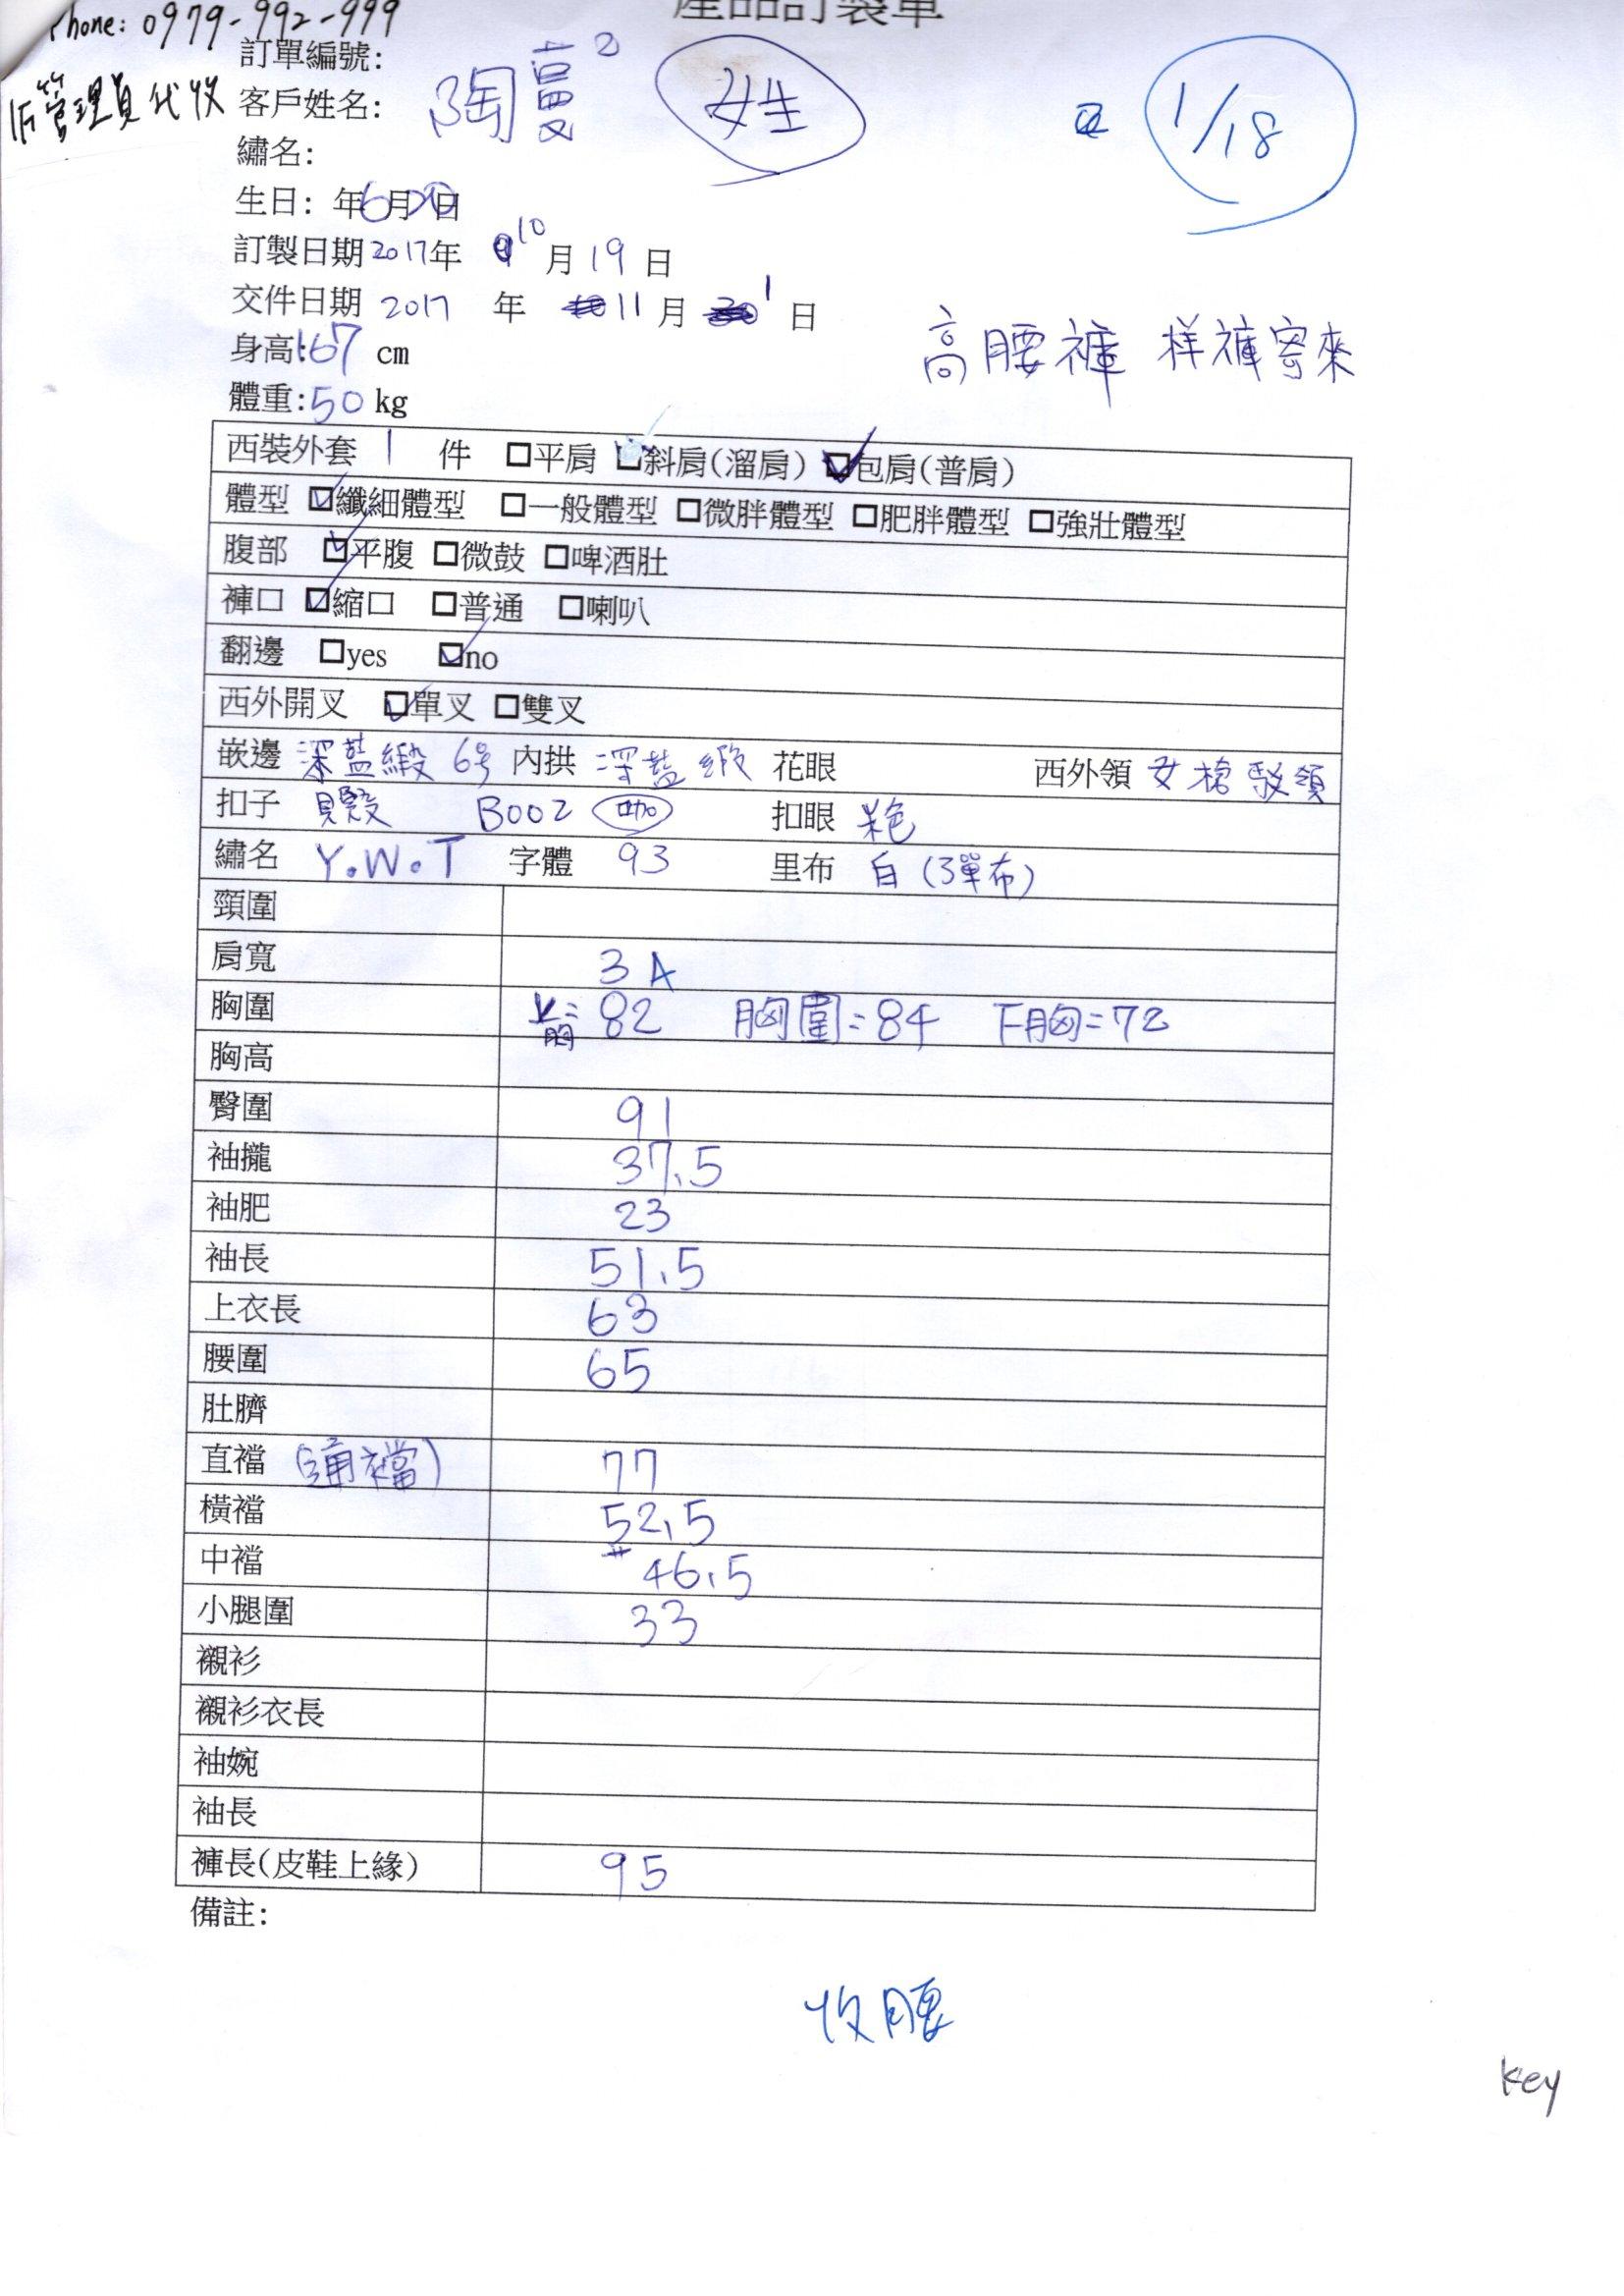 Phone: 0979-992-999
產品訂製單
訂單編號:
管理員代收
客戶姓名: 陶蔓 2 女生
1/18
繡名:
生日: 年6月20日
訂製日期 2017年 10月19日
交件日期 2017 年 11月 1日
高腰褲 样褲寄來
身高:167 cm
體重:50 kg
西裝外套 1 件 □平肩 □斜肩(溜肩) ☑包肩(普肩)
體型 ☑纖細體型 □一般體型 □微胖體型 □肥胖體型 □強壯體型
腹部 ☑平腹 □微鼓 □啤酒肚
褲口 ☑縮口 □普通 □喇叭
翻邊 □yes ☑no
西外開叉 ☑單叉 □雙叉
嵌邊 深藍緞 6号 內拱 深藍緞 花眼 西外領 女槍駁領
扣子 貝殼 B002 咖 扣眼
繡名 Y.W.T 字體 93 里布 白(3單布)
頸圍
肩寬 3
胸圍 上胸= 82 胸圍=84 下胸=72
胸高
臀圍 91
袖攏 37.5
袖肥 23
袖長 51.5
上衣長 63
腰圍 65
肚臍
直襠 (通襠) 77
橫襠 52.5
中襠 46.5
小腿圍 33
襯衫
襯衫衣長
袖婉
袖長
褲長(皮鞋上緣) 95
備註:
收腰
key